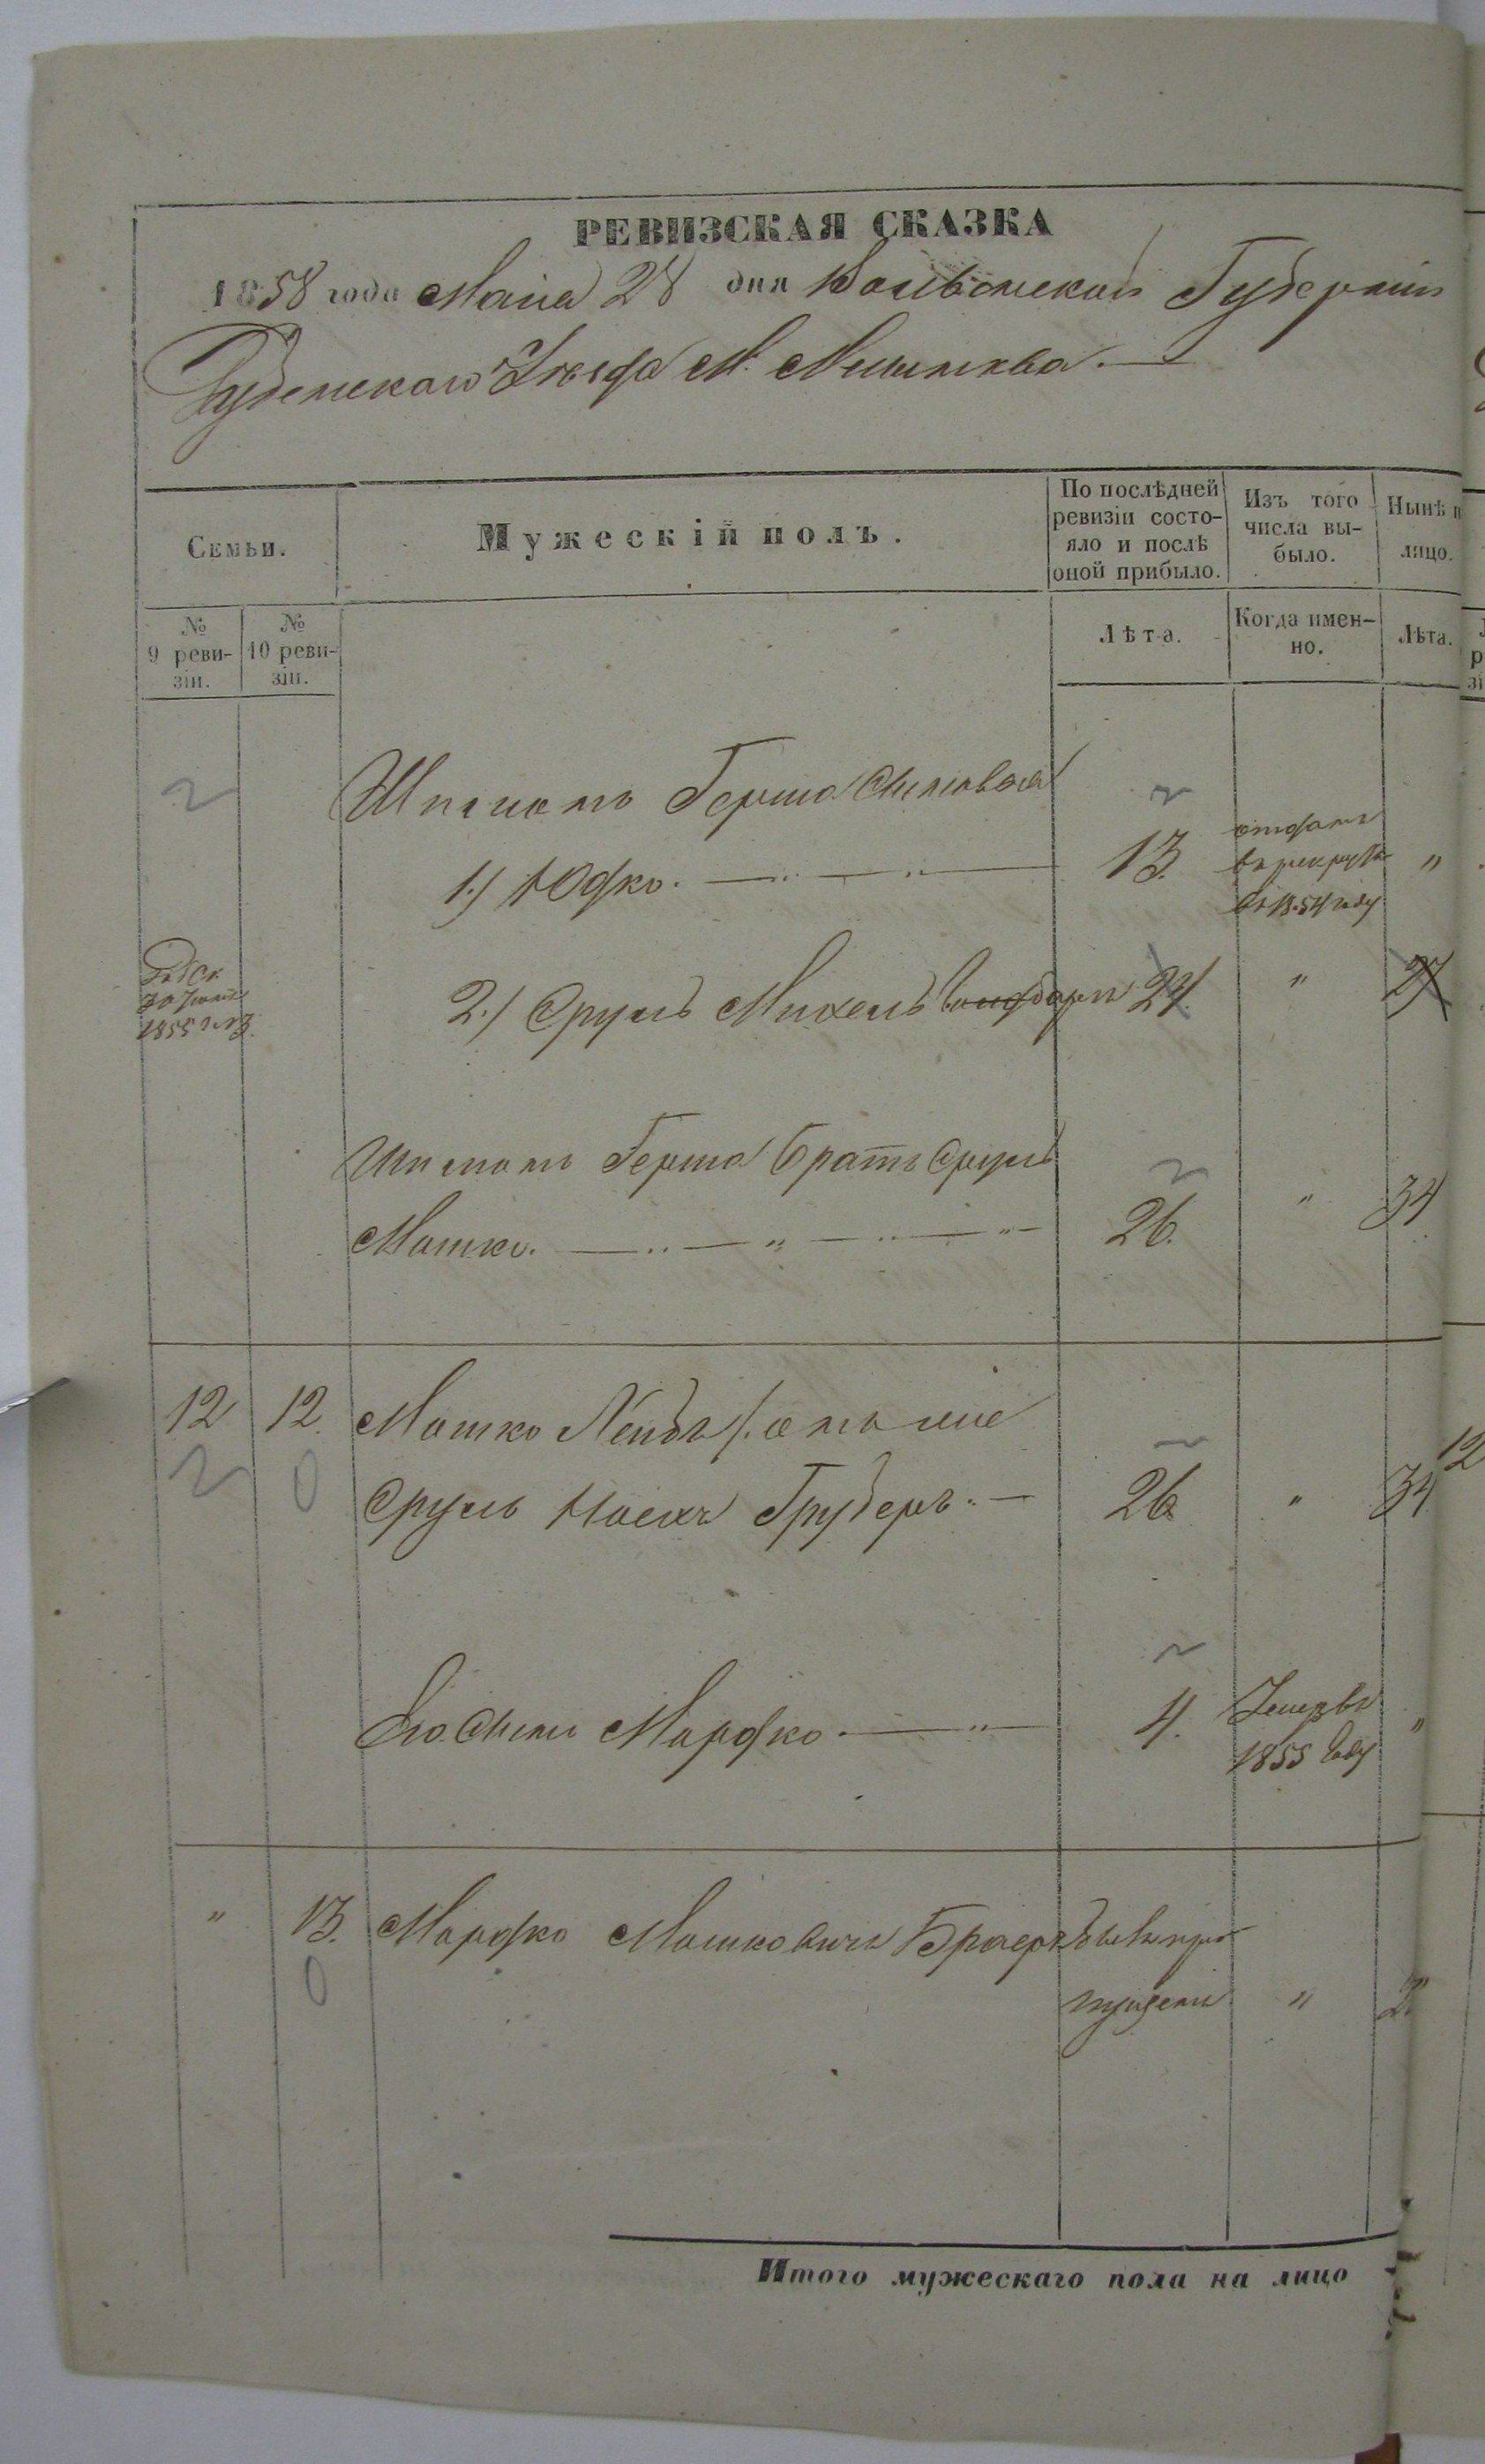 РЕВИЗСКАЯ СКАЗКА
1858 года Маія 28 дня Волынской Губерніи
Дубенскаго Уѣзда М.
Семьи.
Мужескій полъ.
По послѣдней
ревизіи состо-
яло и послѣ
оной прибыло.
Изъ того
числа вы-
было.
Нынѣ
лицо.
№
9 реви-
зіи.
№
10 реви-
зіи.
Лѣта.
Когда имен-
но.
Лѣта.
Герша Сыновья
1.) Юдко. 13. отданъ
въ рекруты "
въ 1854 году
30
1855
2.) Сруль Михель "
Герша братъ Сруль
Мошко. 26. " 34
12 12. Мошко Лейбъ
Сруль Груберъ. 26 " 34
Его Сынъ Мордко 4. Умеръ въ "
1855 году
" 13. Мордко Мошковичъ
"
Итого мужескаго пола на лицо
12